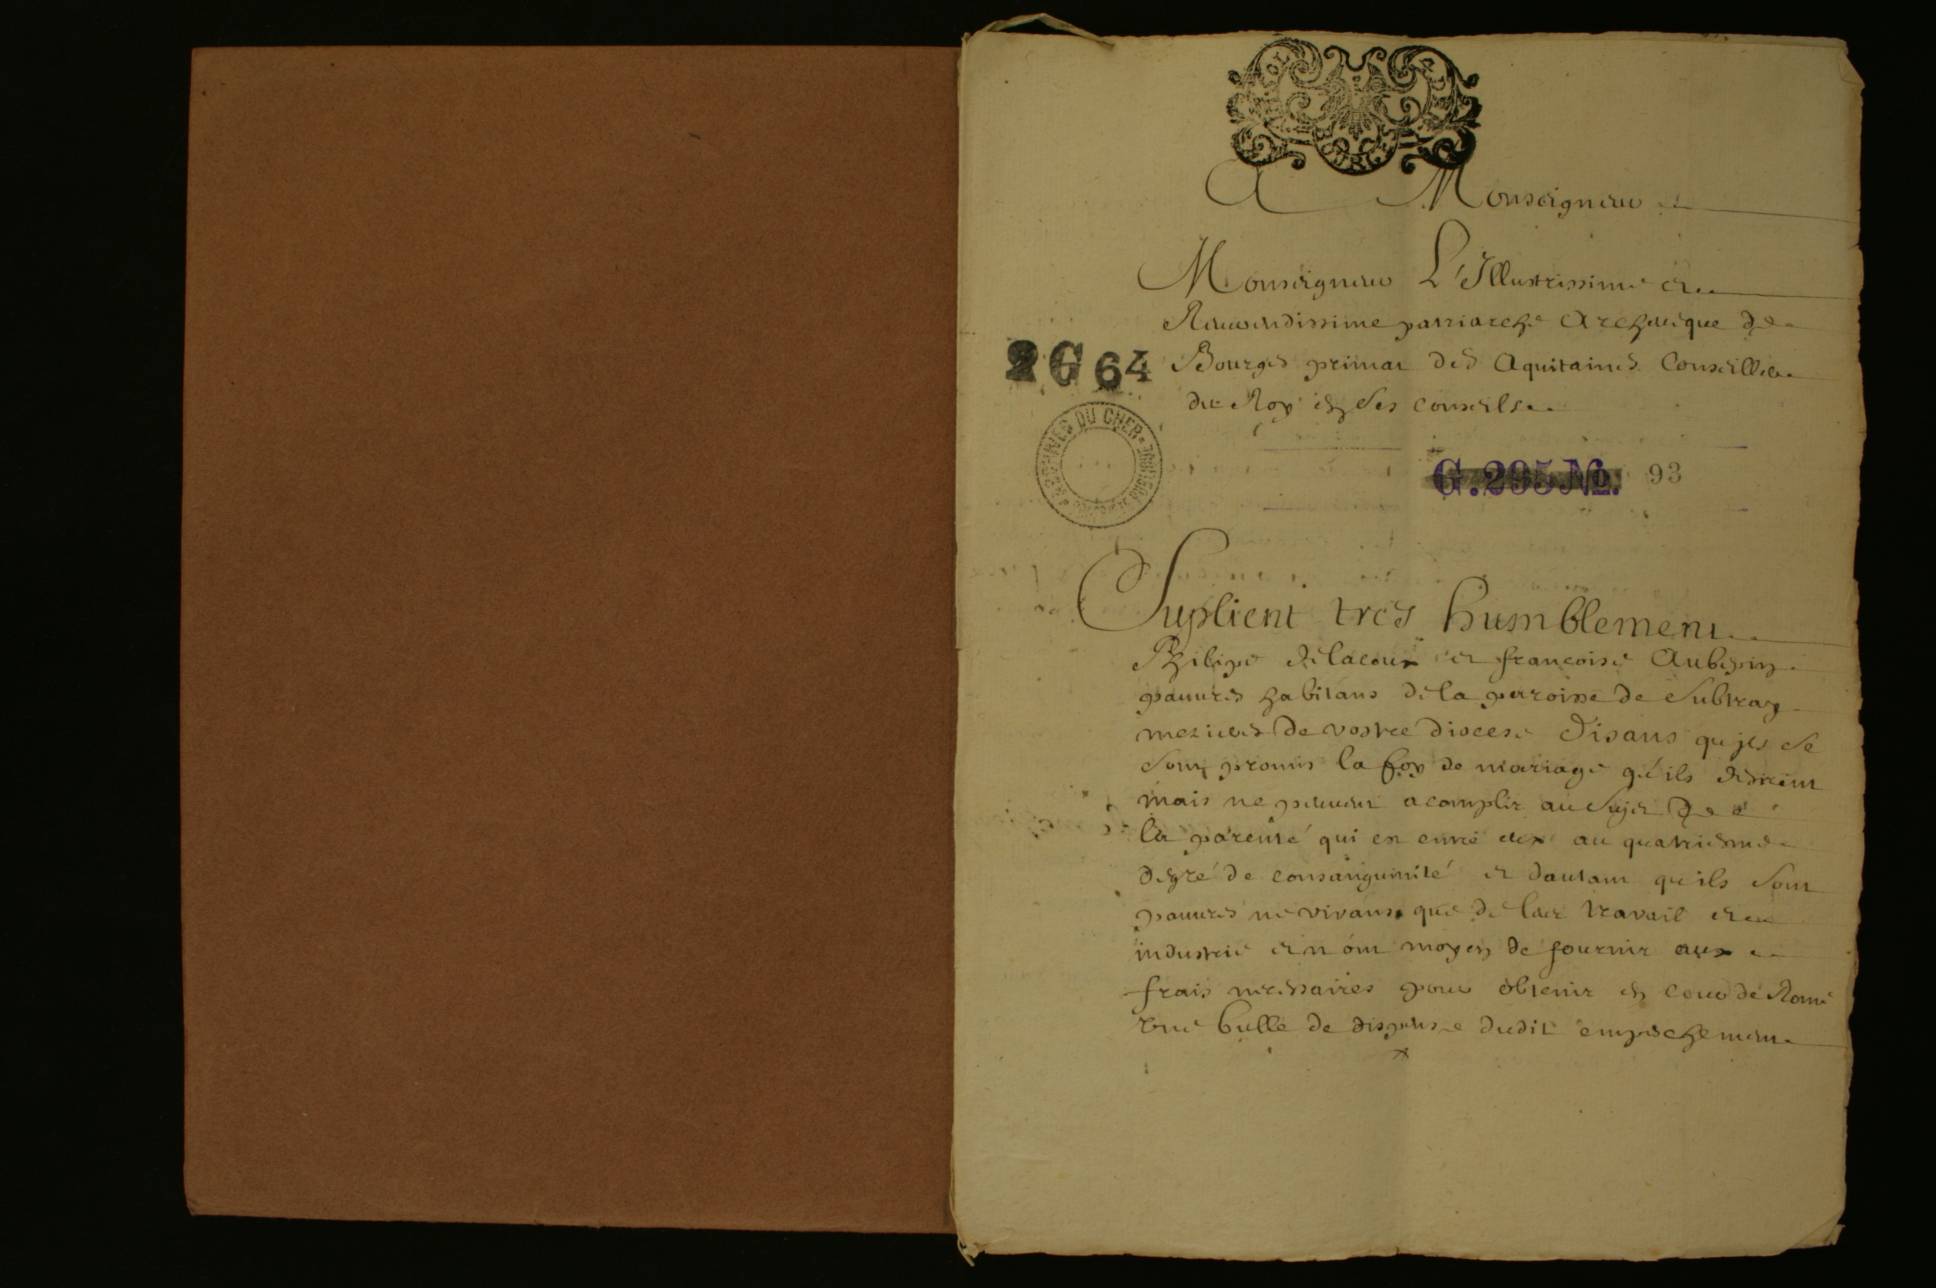 BOURGES
A Monseigneur
Monseigneur L'Illustrissime et
Reverendissime patriarche Archevêque de
2 G 64
Bourges primat des Aquitaines Conseiller
du Roy en ses conseils
ARCHIVES DU CHER
G. 295 No. 93
Suplient tres humblement
Philipe delacoux et francoise Aubepin
pauvres habitans de la paroisse de Subtray
mezieres de vostre diocese disans qu'ils se
sont promis la foy de mariage qu'ils desirent
mais ne peuvent acomplir au sujet de
la parenté qui est entre eux au quatriesme
degré de consanguinité et dautant qu'ils sont
pauvres ne vivans que de leur travail et
industrie et n'ont moyen de fournir aux
frais necessaires pour obtenir en cour de Rome
une bulle de dispense dudit empeschement